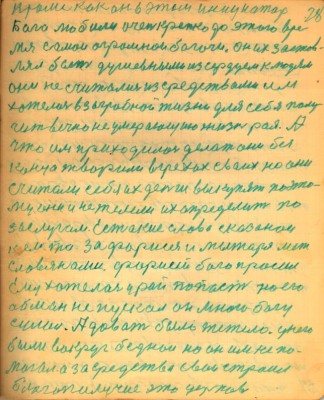 28
кроме как он в этом
Бога любили очен крепко до этого вре-
мя самои огромнои богачи, он их застов-
лял быть душевными изсердцем к людям
они не считалис из средствами им
хотелося взагробной жизни для себя полу
чит вечно не умерающую жизн рая. А
что им приходилос делат они без
конца творили в грехах своих но они
считали себя их денги выкупят поэто-
му они и не жлели их определит по
заслугам. Есть такие слова сказаной
кем то за фарисея и мытаря меж
словянами. фарисей бога просил
ему хотелос в рай попасть но его
обман не пускал он много богу
сулил. А доват было тежело. у него
были вокруг бедной но он им не по-
могал а за средства свои строил
благополучие это церков